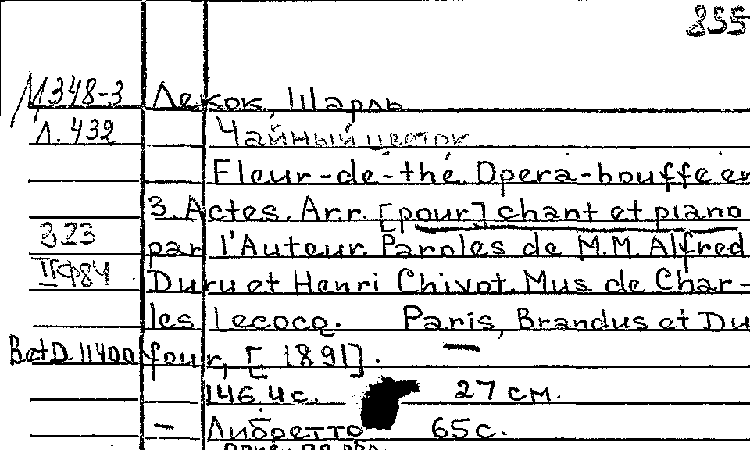 855
М348-3 Лекок, Шарль
Л. 432 Чайный цветок
Fleur-de-thé. Opera-bouffe en
3. Actes. Arr. [pour] chant et piano
323 par l'Auteur. Paroles de M.M. Alfred
Duru et Henri Chivot. Mus de Char-
les Lecocq. Paris, Brandus et Du
B et D. 11400 four, [1891]. —
146.4с. 27 см.
— Либретто 65с.